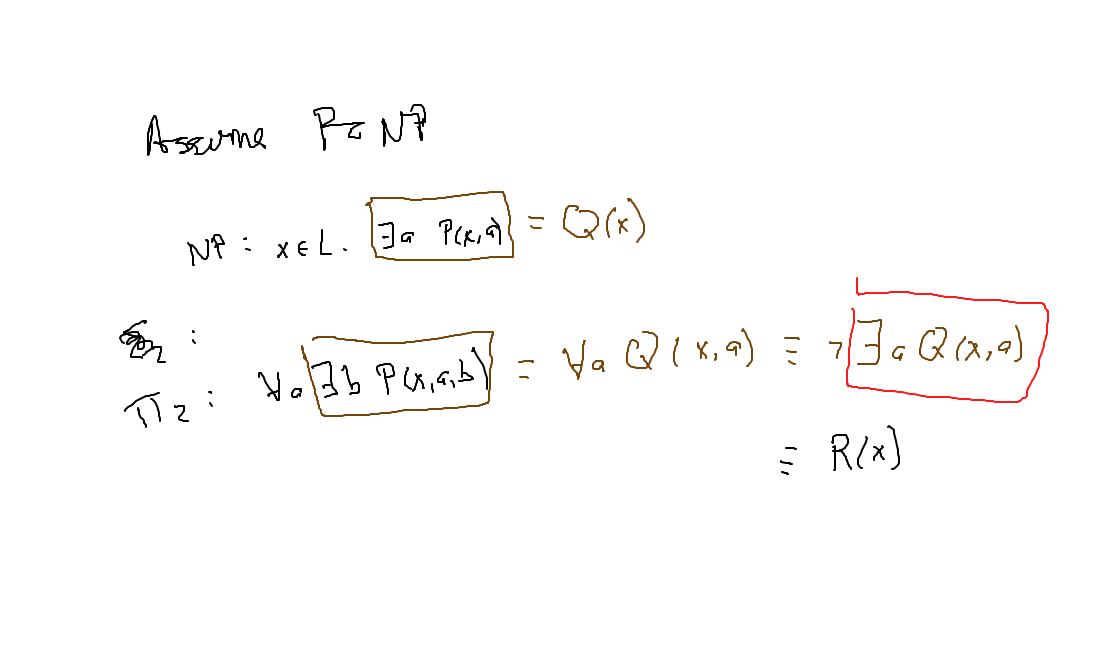 Assume P = NP
NP : x ∈ L . ∃a P(x,a) ≡ Q(x)
:
Π2 : ∀a ∃b P(x,a,b) ≡ ∀a Q(x,a) ≡ ¬∃a Q(x,a)
≡ R(x)